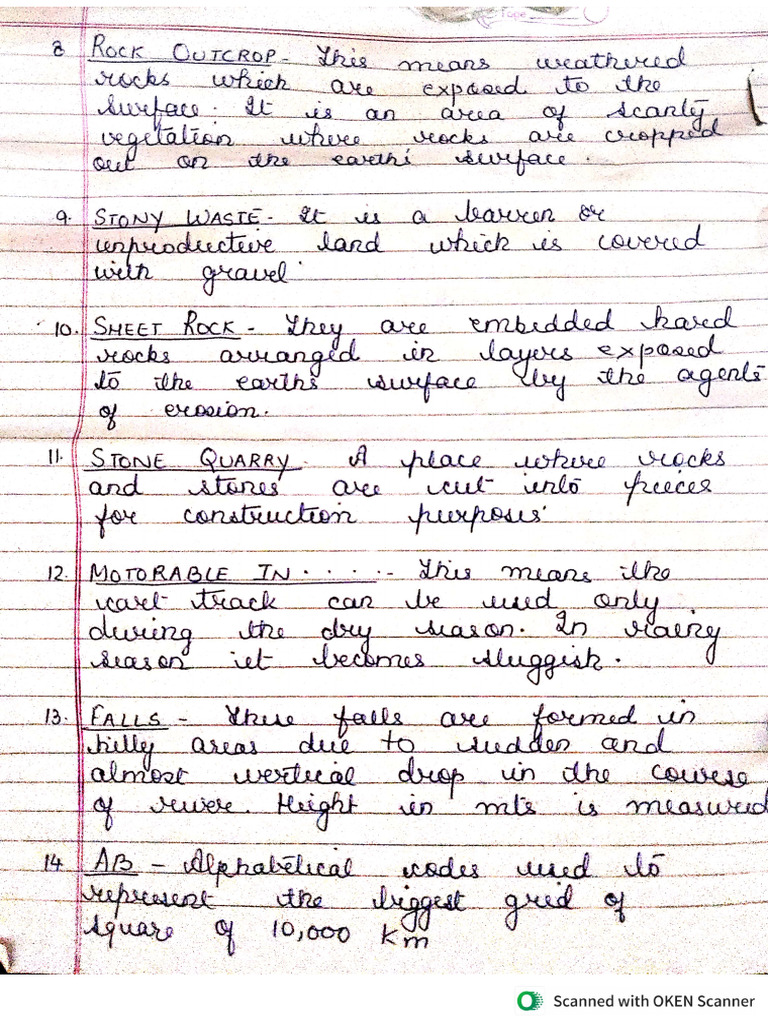 Page
8 ROCK OUTCROP - This means weathered
rocks which are exposed to the
surface. It is an area of scanty
vegetation where rocks are cropped
out on the earth's surface.
9. STONY WASTE - It is a barren or
unproductive land which is covered
with gravel.
10. SHEET ROCK - They are embedded hard
rocks arranged in layers exposed
to the earths surface by the agents
of erosion.
11. STONE QUARRY - A place where rocks
and stones are cut into pieces
for construction purposes.
12. MOTORABLE IN ..... - This means the
cart track can be used only
during the dry season. In rainy
season it becomes sluggish.
13. FALLS - These falls are formed in
hilly areas due to sudden and
almost vertical drop in the course
of river. Height in mts is measured
14 AB - Alphabetical codes used to
represent the biggest grid of
square of 10,000 km
Scanned with OKEN Scanner